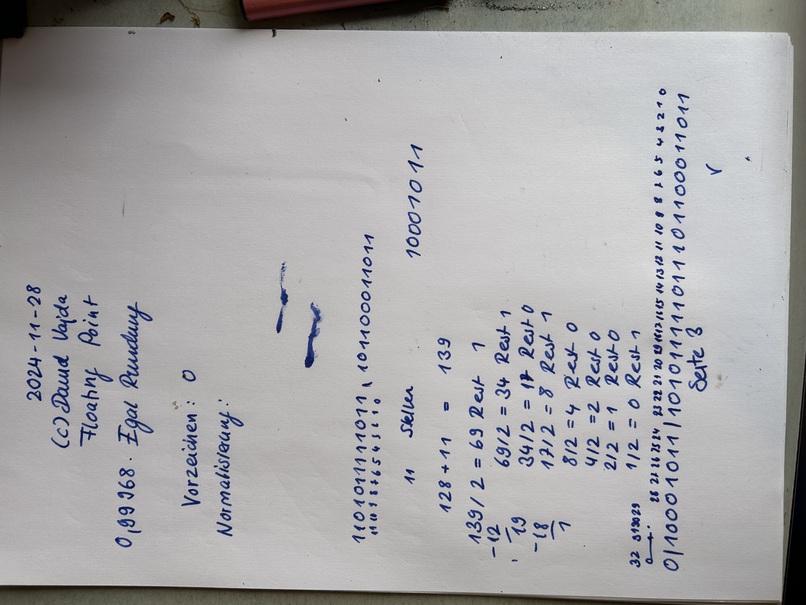 2024-11-28
(c) David Vajda
Floating Point
0,99968. Egal Rundung
Vorzeichen: 0
Normalisierung:
110101111011, 101100011011
11 10 9 8 7 6 5 4 3 2 1 0
11 Stellen
128 + 11 = 139 10001011
139/2 = 69 Rest 1
-12 69/2 = 34 Rest 1
19 34/2 = 17 Rest 0
-18 17/2 = 8 Rest 1
1 8/2 = 4 Rest 0
4/2 = 2 Rest 0
2/2 = 1 Rest 0
1/2 = 0 Rest 1
0|10001011|101011111011101100011011
Seite 3